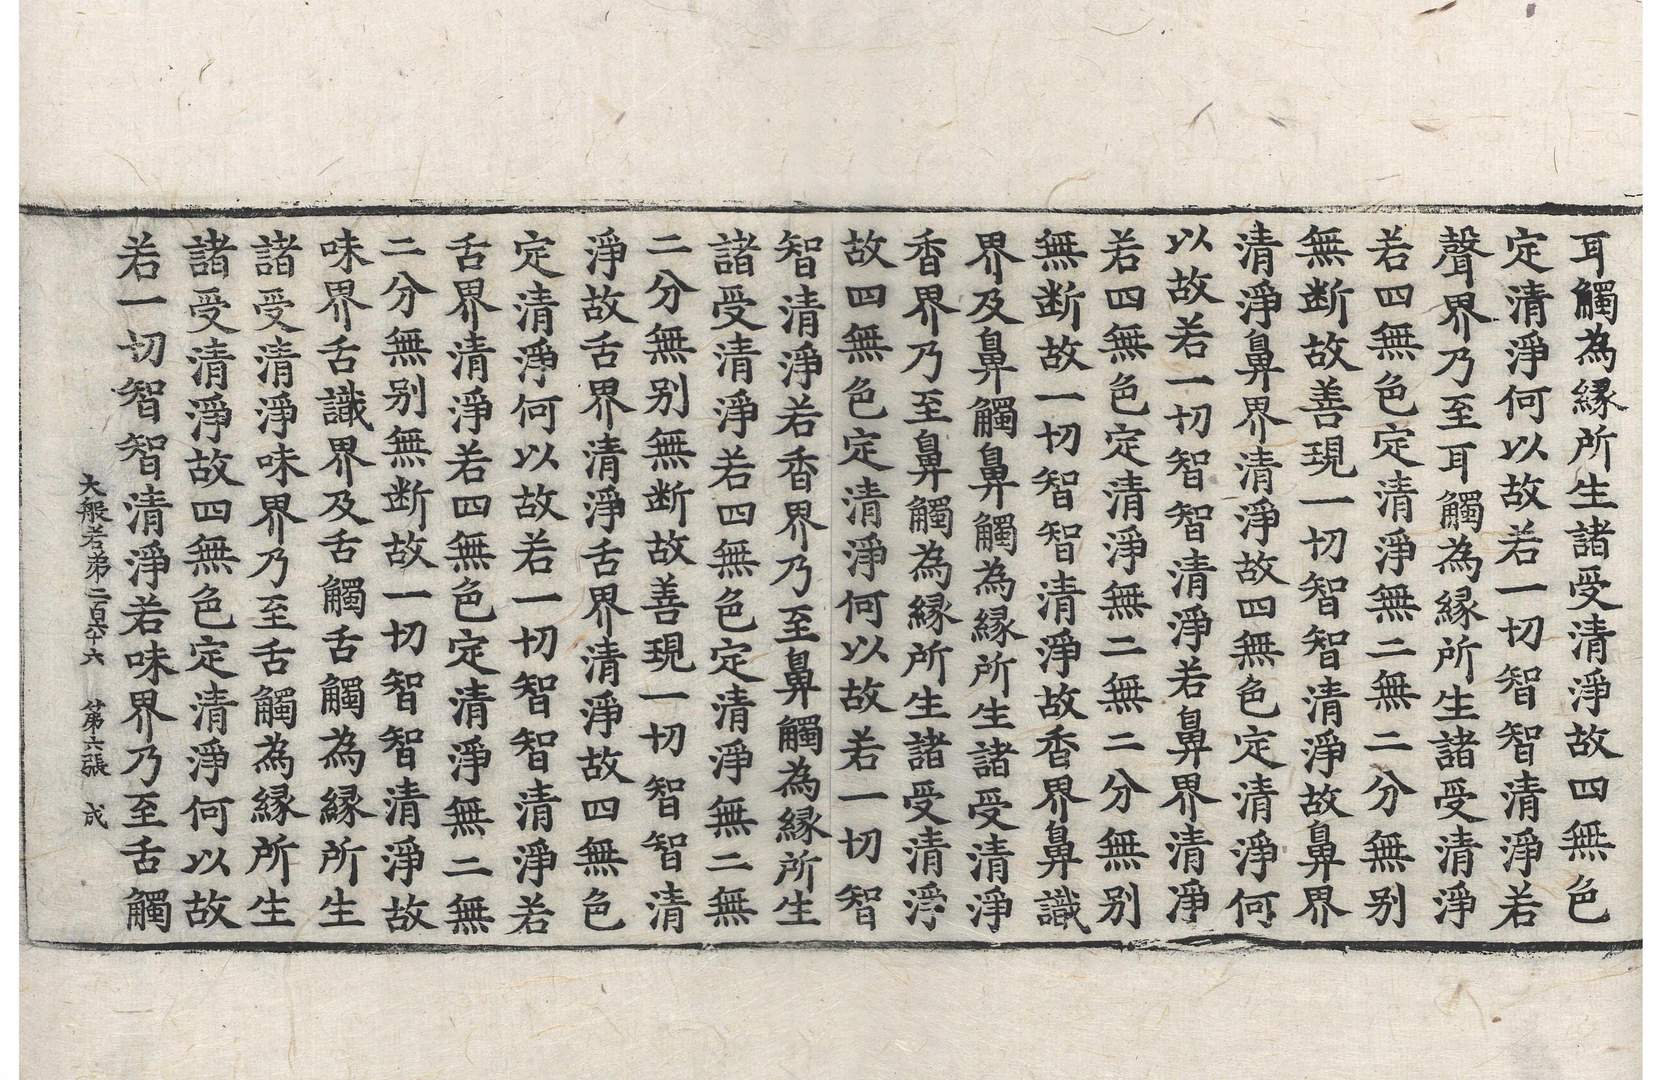 耳觸為緣所生諸受清淨故四無色
定清淨何以故若一切智智清淨若
聲界乃至耳觸為緣所生諸受清淨
若四無色定清淨無二無二分無别
無断故善現一切智智清淨故鼻界
清淨鼻界清淨故四無色定清淨何
以故若一切智智清淨若鼻界清淨
若四無色定清淨無二無二分無别
無断故一切智智清淨故香界鼻識
界及鼻觸鼻觸為緣所生諸受清淨
香界乃至鼻觸為緣所生諸受清淨
故四無色定清淨何以故若一切智
智清淨若香界乃至鼻觸為緣所生
諸受清淨若四無色定清淨無二無
二分無别無断故善現一切智智清
淨故舌界清淨舌界清淨故四無色
定清淨何以故若一切智智清淨若
舌界清淨若四無色定清淨無二無
二分無别無断故一切智智清淨故
味界舌識界及舌觸舌觸為緣所生
諸受清淨味界乃至舌觸為緣所生
諸受清淨故四無色定清淨何以故
若一切智智清淨若味界乃至舌觸
大般若弟二百六十六 第六張